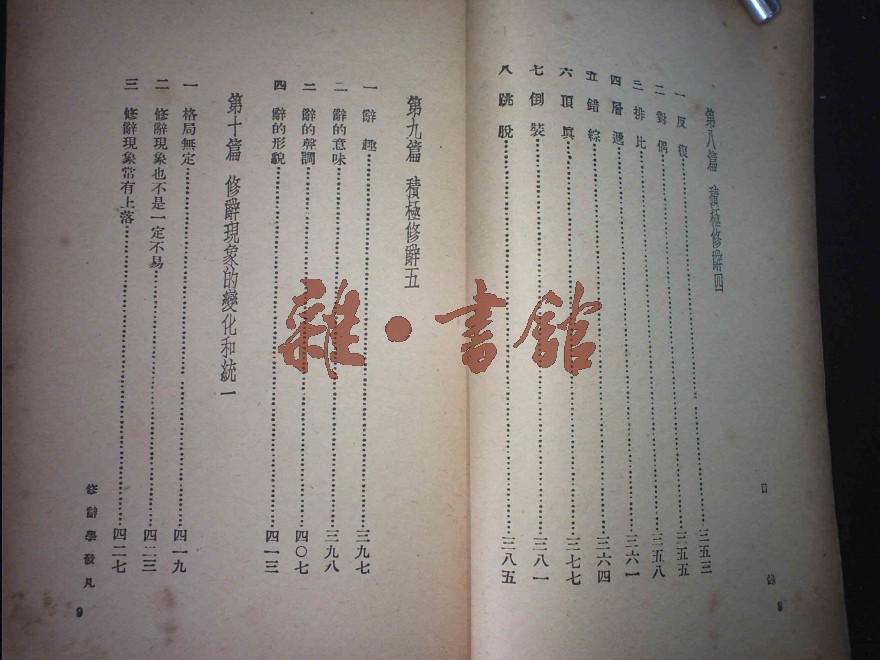 第八篇 積極修辭四
一 反復……三五三
二 對偶……三五五
三 排比……三五八
四 層遞……三六一
五 錯綜……三六四
六 頂真……三七七
七 倒裝……三八一
八 跳脫……三八五
目錄 8
第九篇 積極修辭五
一 辭趣……三九七
二 辭的意味……三九八
三 辭的聲調……四〇七
四 辭的形貌……四一三
第十篇 修辭現象的變化和統一
一 格局無定……四一九
二 修辭現象也不是一定不易……四二三
三 修辭現象常有上落……四二七
修辭學發凡 9
雜·書館